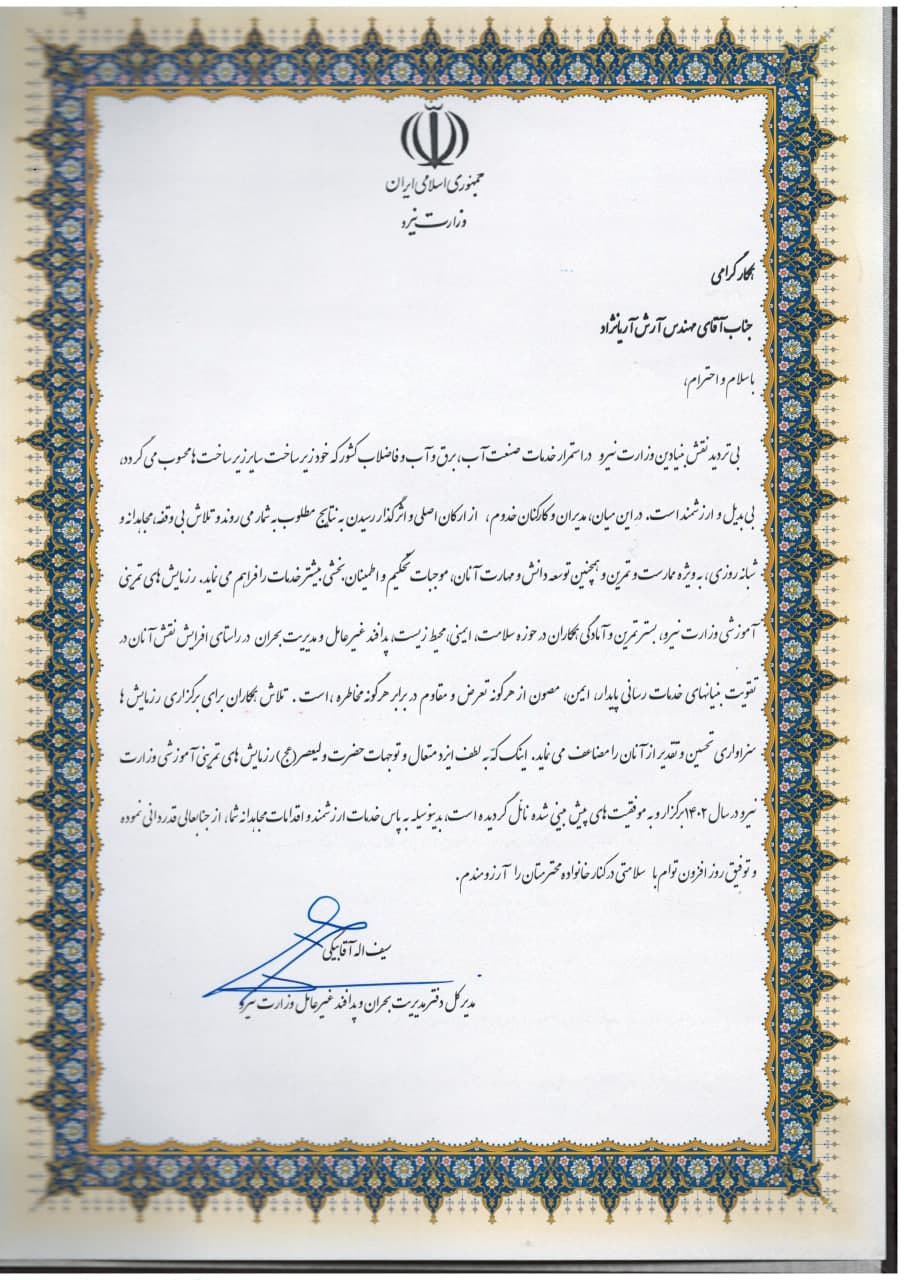 جمهوری اسلامی ایران
وزارت نیرو
همکار گرامی
جناب آقای مهندس آرش آریانژاد
با سلام و احترام،
بی تردید نقش بنیادین وزارت نیرو در استمرار خدمات صنعت آب، برق و آب و فاضلاب کشور که خود زیر ساخت سایر زیر ساخت ها محسوب می گردد،
بی بدیل و ارزشمند است. در این میان، مدیران و کارکنان خدوم، از ارکان اصلی و اثرگذار رسیدن به نتایج مطلوب به شمار می روند و تلاش بی وقفه، مجاهدانه و
شبانه روزی، به ویژه ممارست و تمرین و همچنین توسعه دانش و مهارت آنان، موجبات تحکیم و اطمینان بخشی بیشتر خدمات را فراهم می نماید. رزمایش های تمرینی
آموزشی وزارت نیرو، بستر تمرین و آمادگی همکاران در حوزه سلامت، ایمنی، محیط زیست، پدافند غیر عامل و مدیریت بحران در راستای افزایش نقش آنان در
تقویت بنیانهای خدمات رسانی پایدار، ایمن، مصون از هرگونه تعرض و مقاوم در برابر هرگونه مخاطره ،است . تلاش همکاران برای برگزاری رزمایش ها
سزاواری تحسین و تقدیر از آنان را مضاعف می نماید. اینک که به لطف ایزد متعال و توجهات حضرت ولیعصر(عج) رزمایش های تمرینی آموزشی وزارت
نیرو در سال ۱۴۰۲ برگزار و به موفقیت های پیش بینی شده نائل گردیده است، بدینوسیله به پاس خدمات ارزشمند و اقدامات مجاهدانه شما، از جنابعالی قدردانی نموده
و توفیق روز افزون توام با سلامتی در کنار خانواده محترمتان را آرزومندم.
سیف اله آقابیگی
مدیر کل دفتر مدیریت بحران و پدافند غیر عامل وزارت نیرو